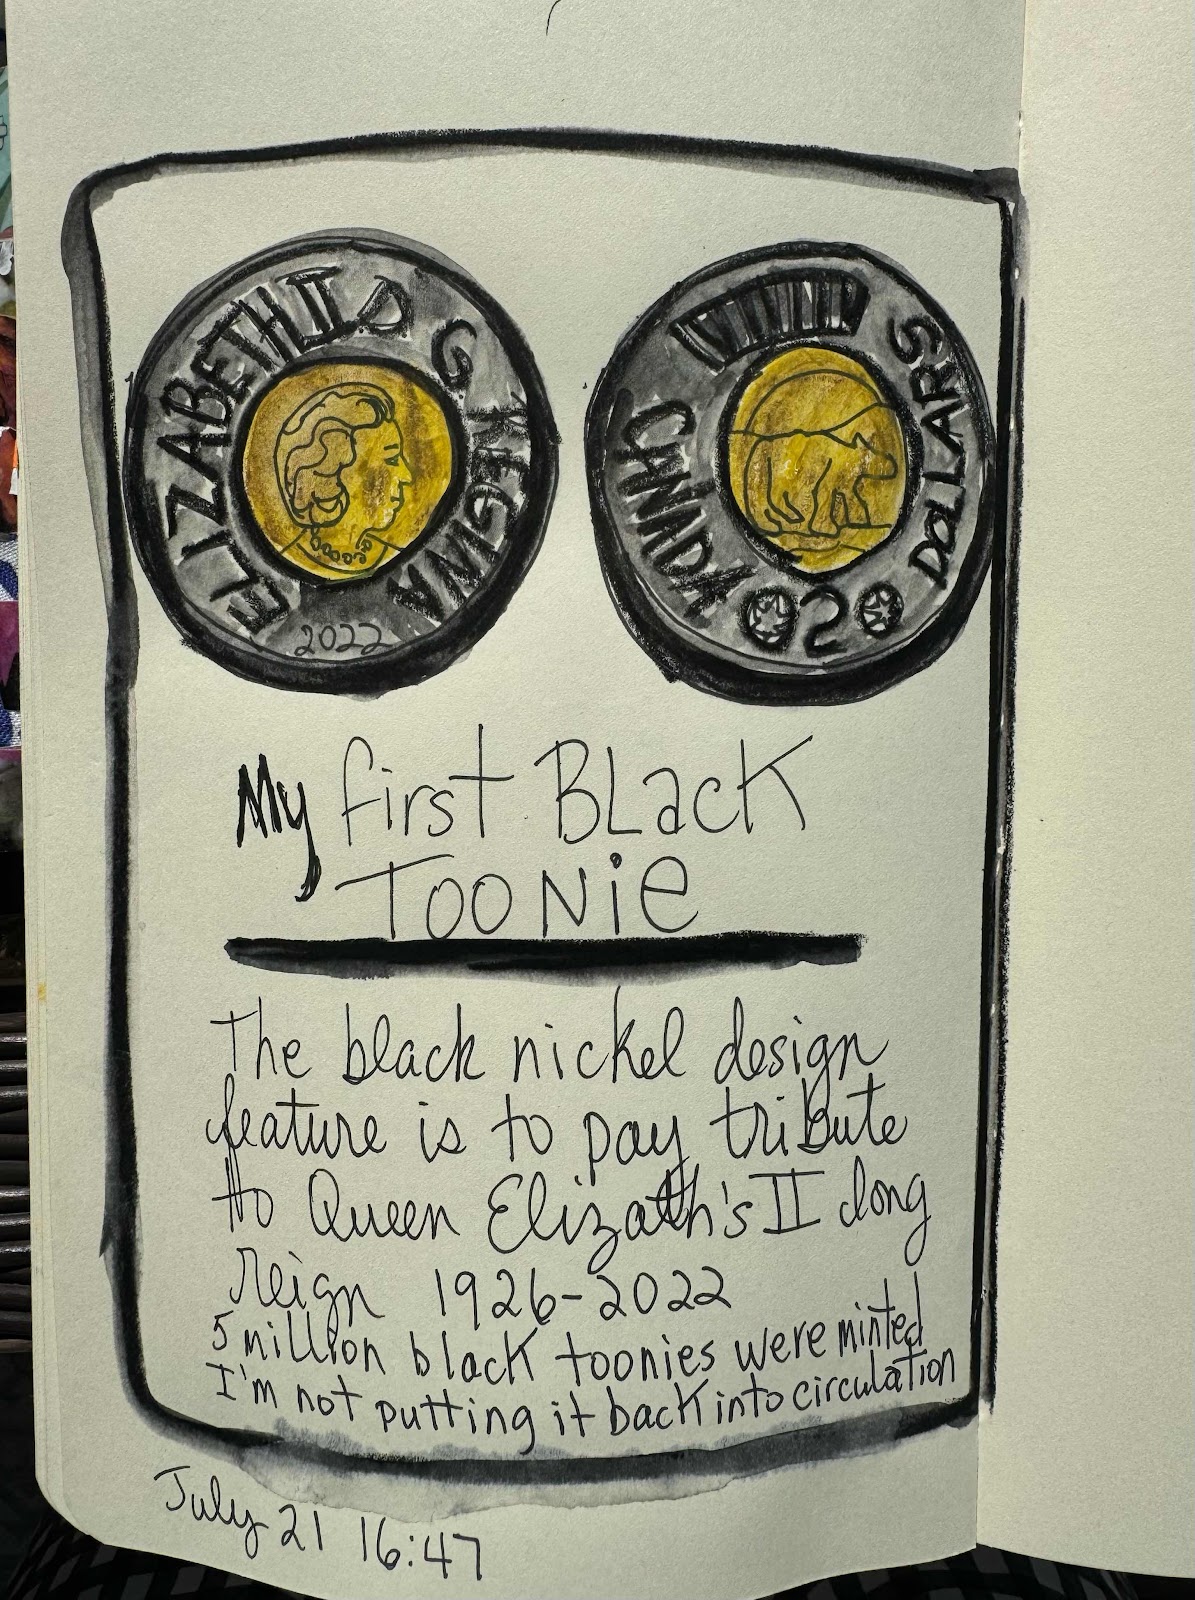 ELIZABETH II D G REGINA
2022
CANADA 2 DOLLARS
My first BLacK
TOONie
The black nickel design
feature is to pay tribute
to Queen Elizath's II long
reign 1926-2022
5 million black toonies were minted
I'm not putting it back into circulation
July 21 16:47